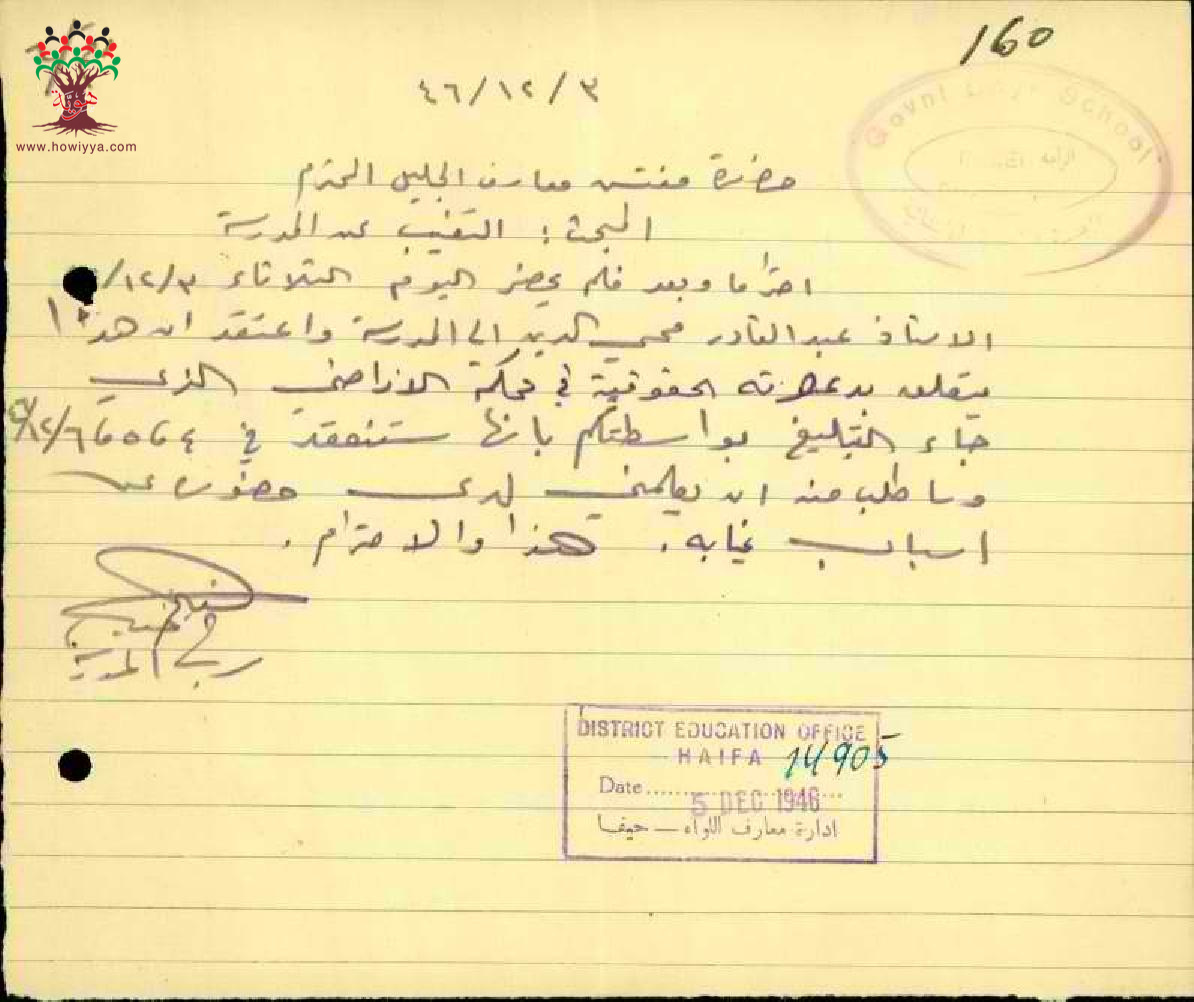 160
هوية
www.howiyya.com
٤٦/١٢/٣
Govnt Boys School
الرامه
حضرة مفتش معارف الجليل المحترم
المبحث : التغيب عن المدرسة
احتراما وبعد فلم يحضر اليوم الثلاثاء ١٢/٣/
الاستاذ عبد القادر محيي الدين الى المدرسة واعتقد ان هذا
يتعلق بدعوته الحقوقية في محكمة الاراضي الذي
جاء التبليغ بواسطتكم بانها ستنعقد في ٤ ، ٥ ، ٦/١٢
وساطلب منه ان يعلمني لدى حضوره عن
اسباب غيابه . هذا والاحترام .
المدرسة
DISTRICT EDUCATION OFFICE
HAIFA 14905
Date 5 DEC 1946
ادارة معارف اللواء — حيفا